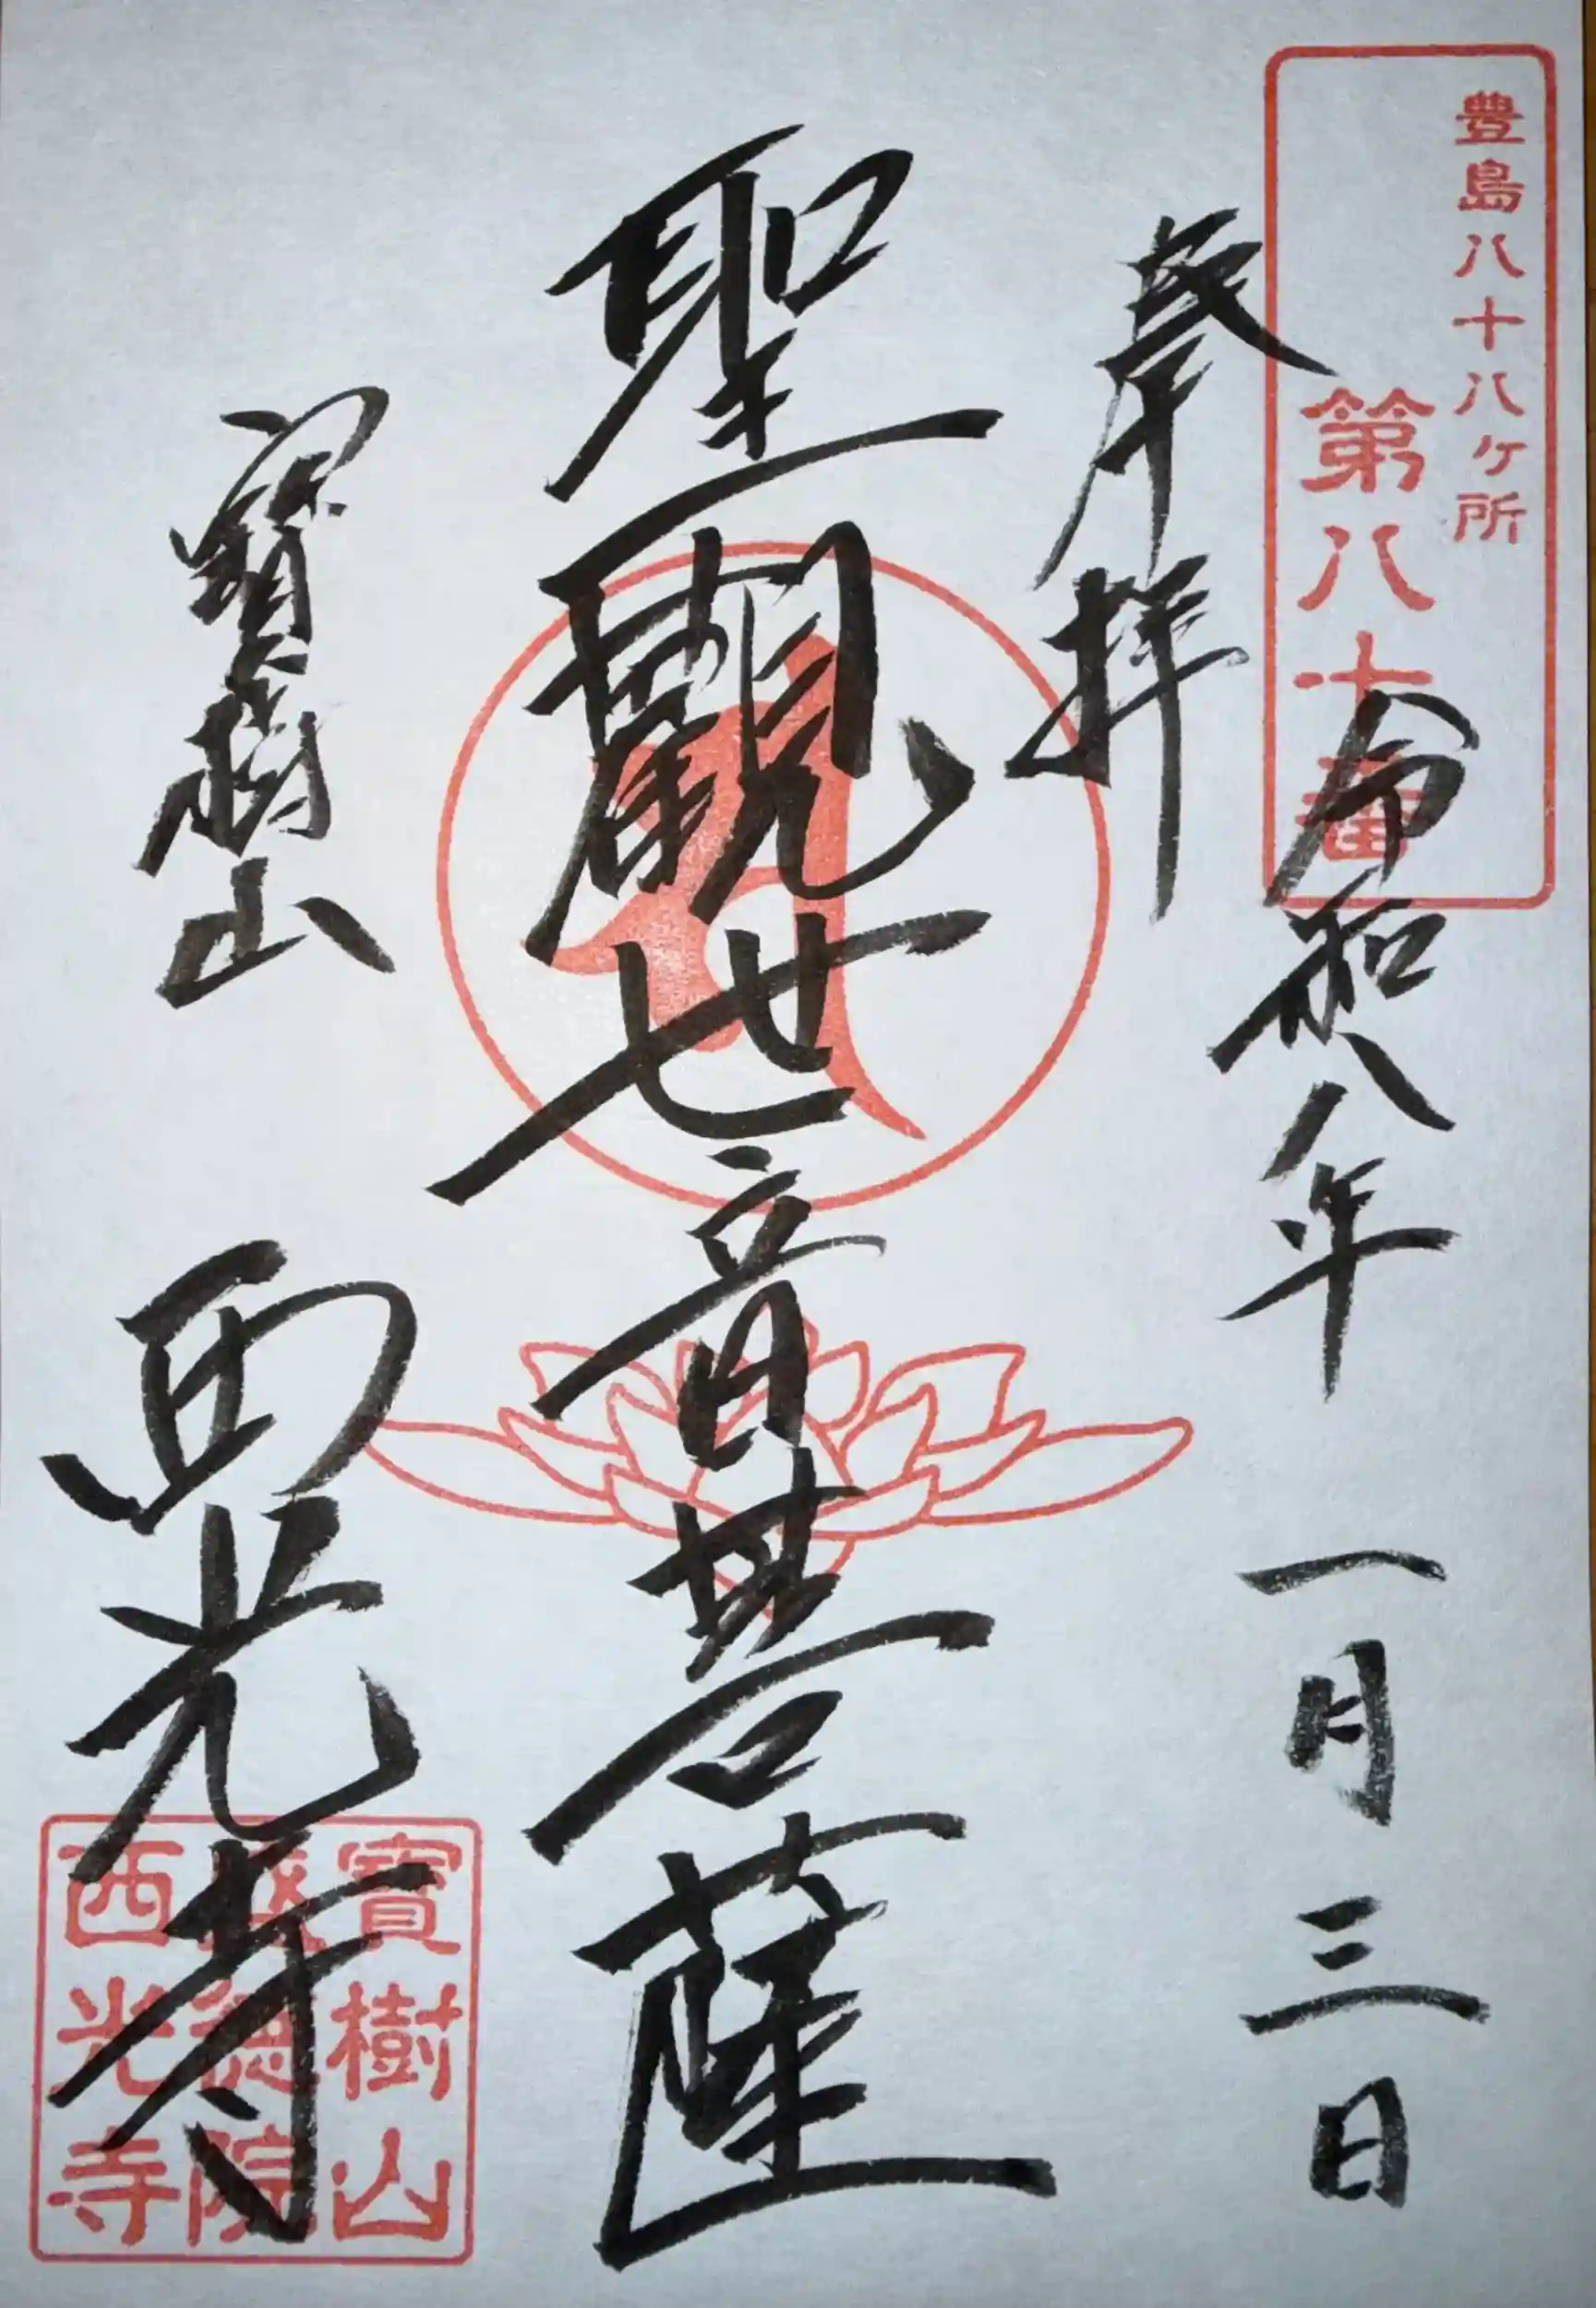 豊島八十八ヶ所
第八十番
奉拝
令和八年一月三日
聖観世音菩薩
寶樹山
西光寺
寶樹山
徳院
西光寺